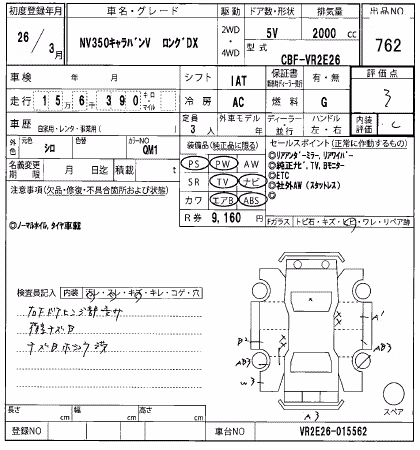 初度登録年月 車名・グレード 駆動 ドア数・形状 排気量 出品NO
26/3月 NV350キャラバンV ロングDX 2WD・4WD 5V 2000 cc 762
型式 CBF-VR2E26
車検 年 月 シフト IAT 保証書 有・無 評価点
走行 15万6千390 キロ・マイル 冷房 AC 燃料 G 3
車歴 自家用・レンタ・事業用( ) 定員 3人 外車モデル 年 ディーラー・並行 ハンドル 左・右 内装評価 C
外色 元色 シロ 色替 カラーNO QM1
装備品(純正品に限る) セールスポイント(正常に作動するもの)
名義変更期限 月 日迄 積載 t
PS PW AW
SR TV ナビ
カワ エアB ABS
R券 9,160 円
◎リアアンダーミラー、リアワイパー
◎純正ナビ、TV、Bモニター
◎ETC
◎社外AW(スタットレス)
◎
注意事項(欠品・修復・不具合箇所および状態)
◎ノーマルホイル、タイヤ車載
Fガラス トビ石・キズ・ヒビ・ワレ・リペア跡
検査員記入 内装 汚レ・スレ・キズ・キレ・コゲ・穴
A1
B2
AB3
AB3
W3
A3
スペア
長さ cm 幅 cm 高さ cm
登録NO 車台NO VR2E26-015562